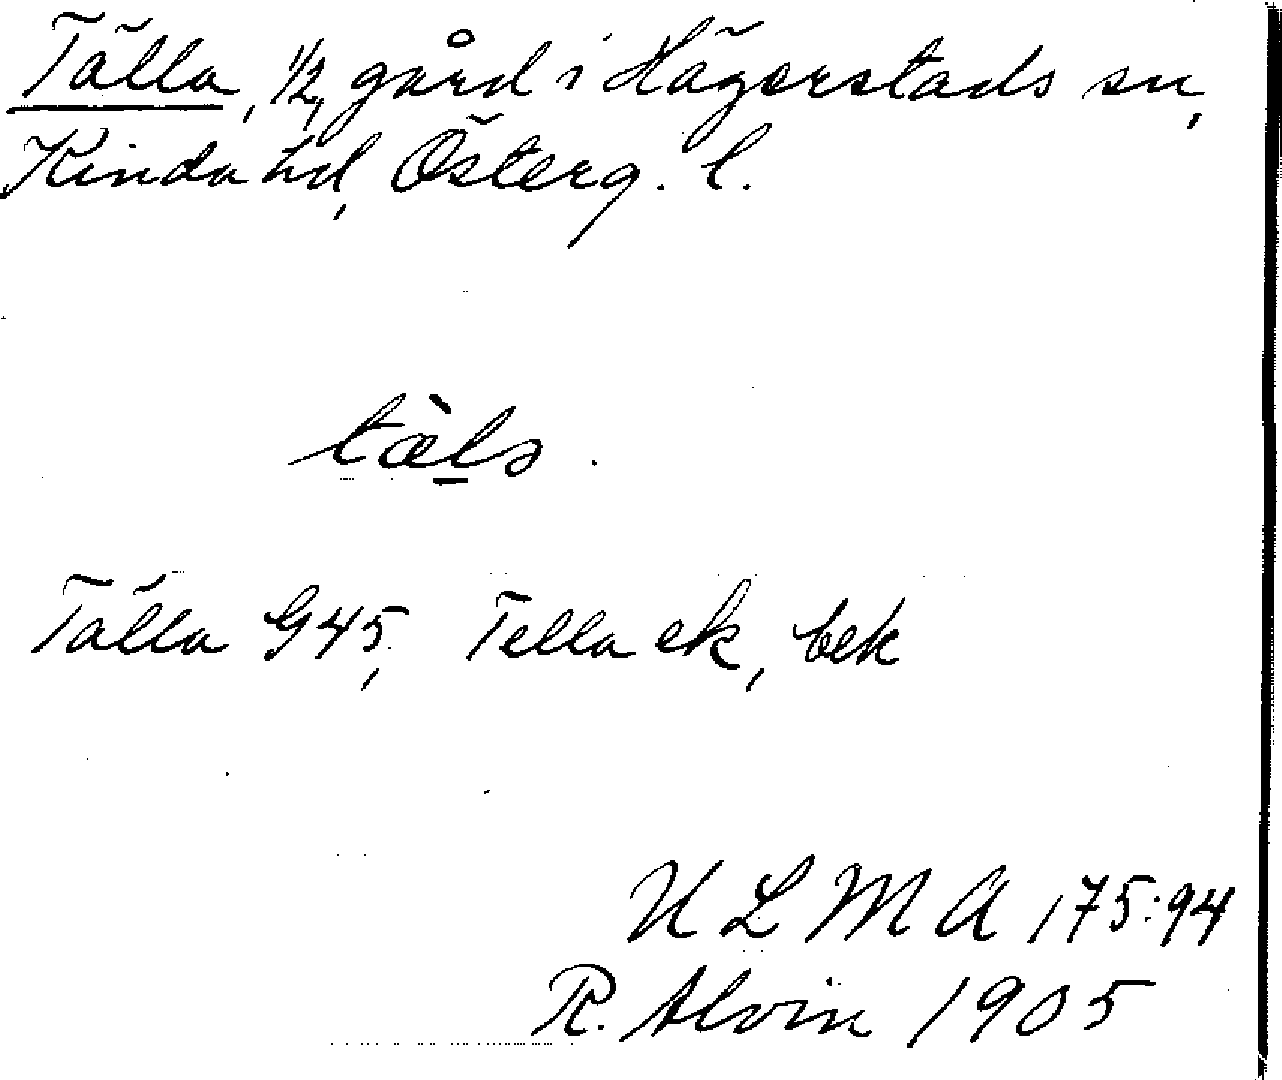 Tälla, 1/2 gård i Hägerstads sn,
Kinda hd, Österg. l.
tæ̀l̠ɒ.
Tälla G45, Tella ek, bek
ULMA 175:94
R. Alvin 1905